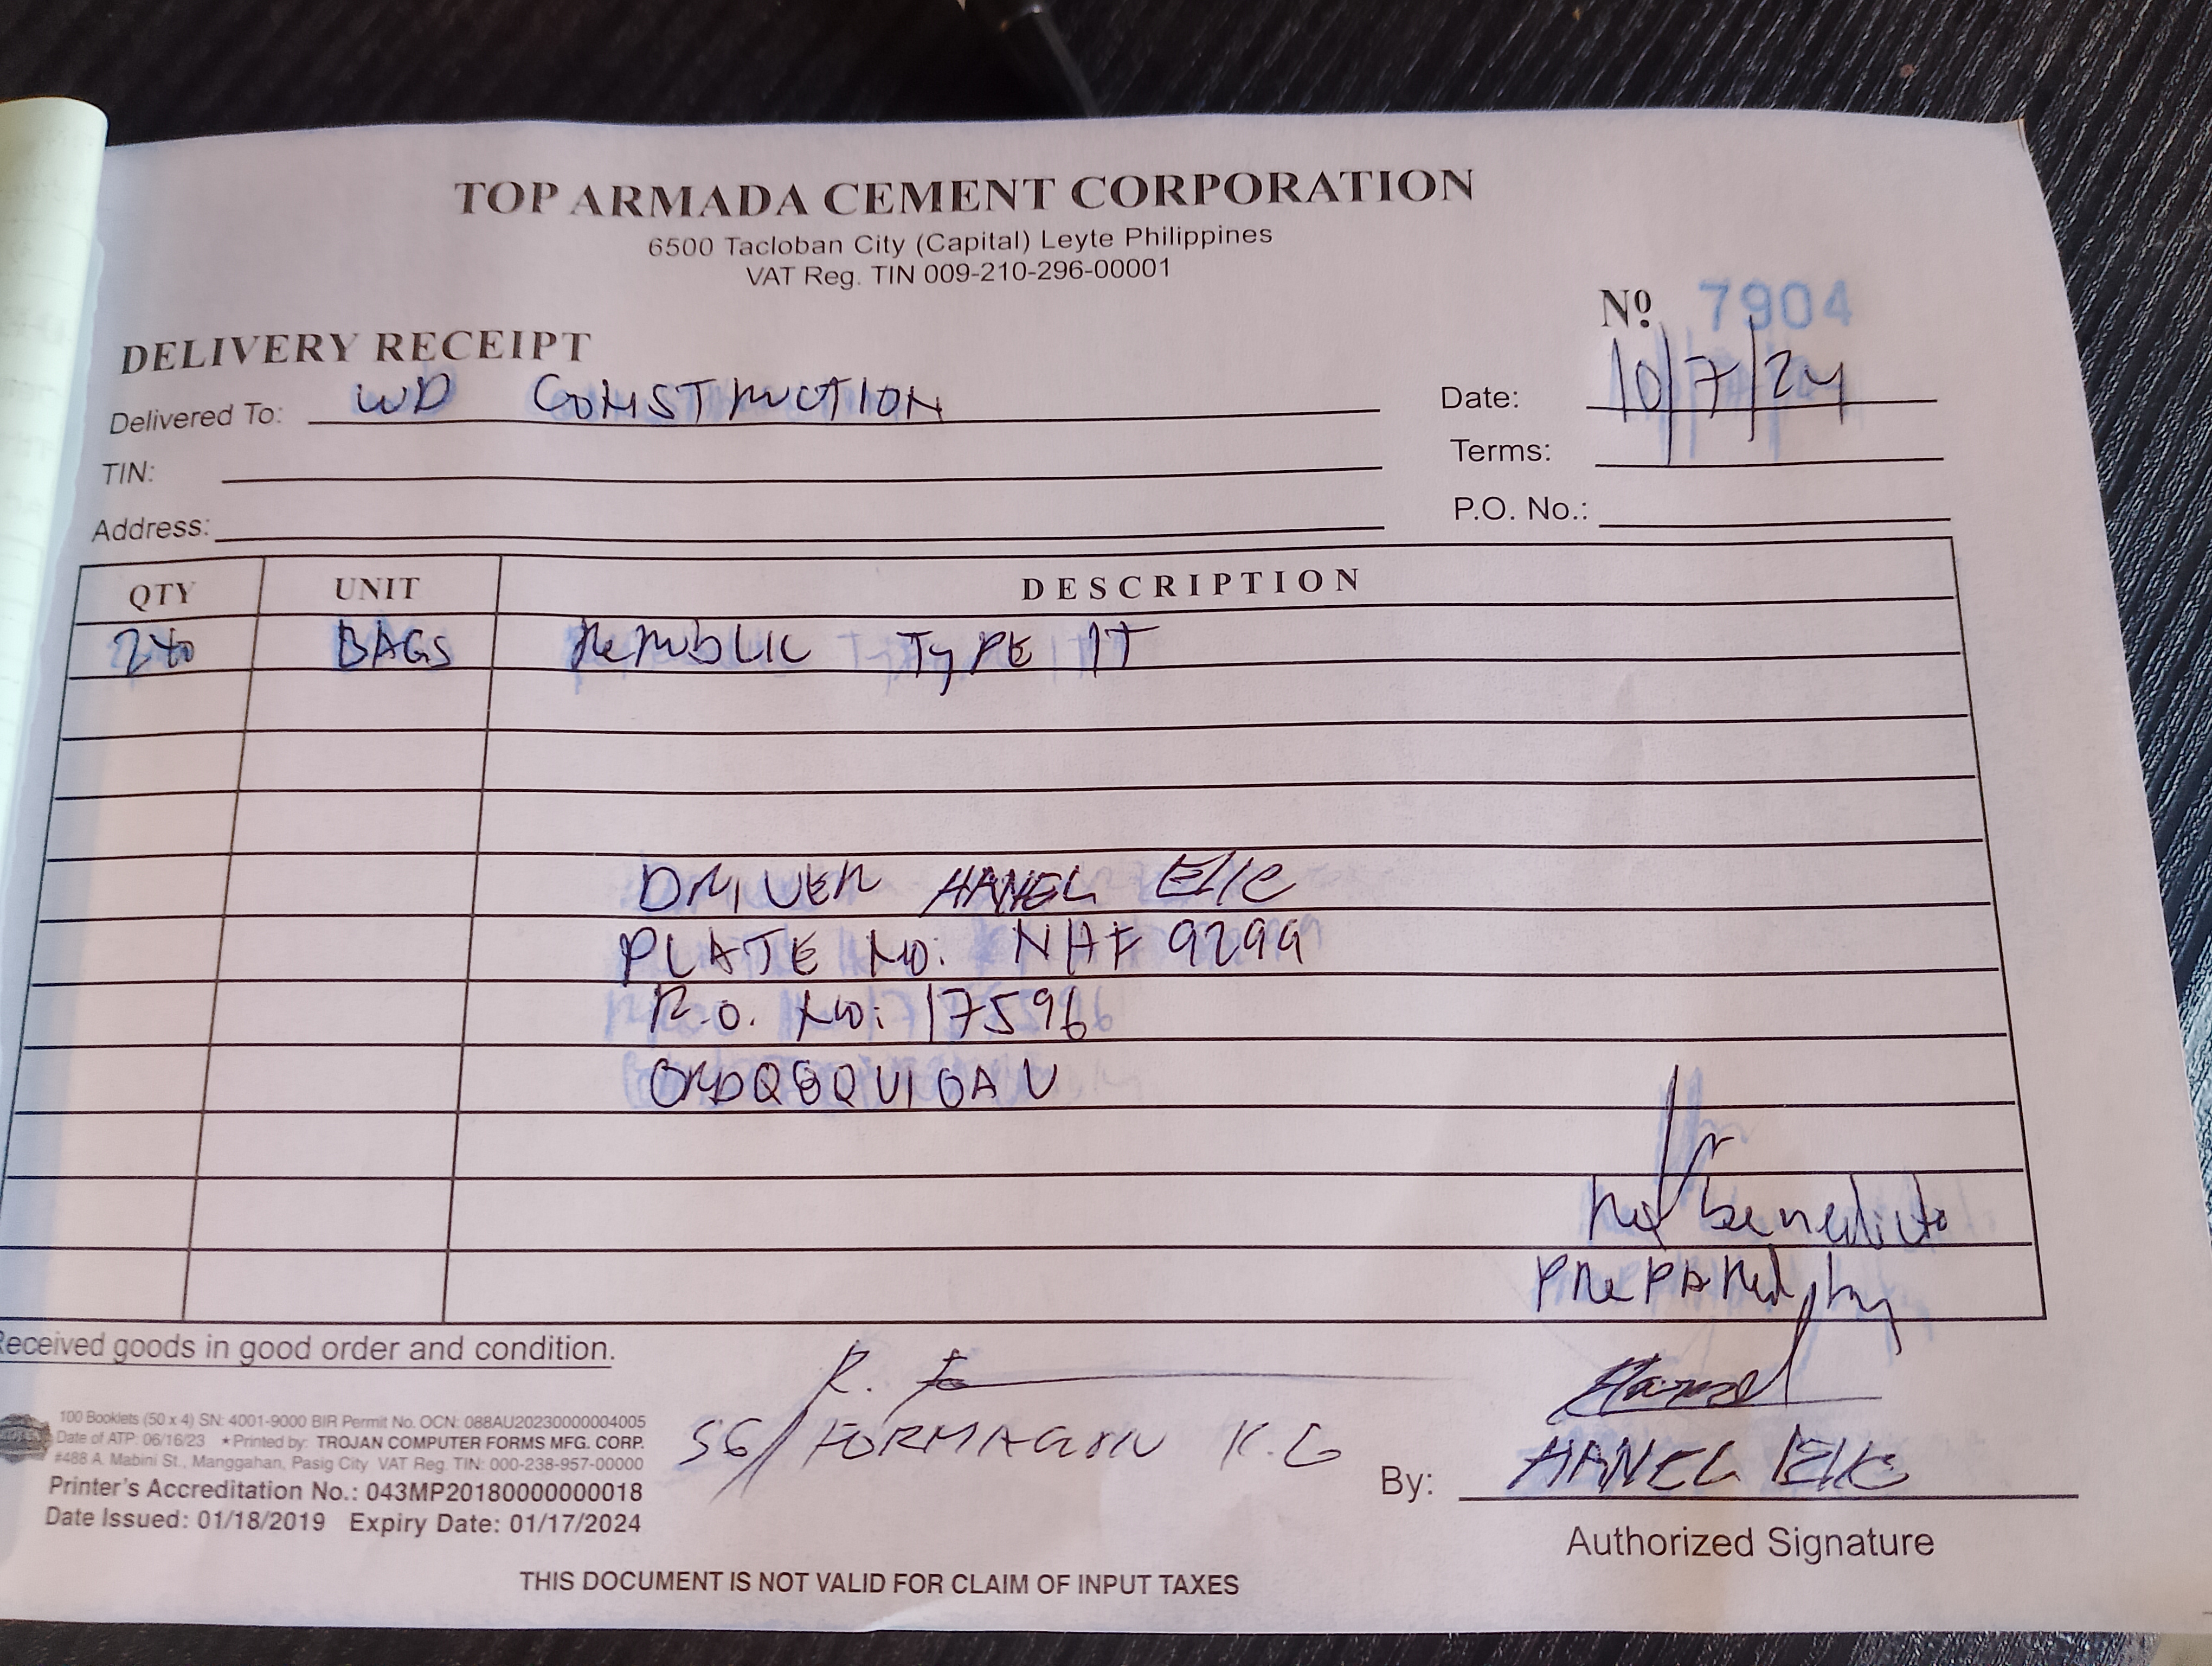 TOP ARMADA CEMENT CORPORATION
6500 Tacloban City (Capital) Leyte Philippines
VAT Reg. TIN 009-210-296-00001
Nº 7904
DELIVERY RECEIPT
Delivered To: WD CONSTRUCTION
Date: 10/7/24
TIN:
Terms:
Address:
P.O. No.:
QTY UNIT DESCRIPTION
240 BAGS REPUBLIC TYPE 1T
DRIVER HANEL
PLATE NO: NHF 9299
R.O. NO: 17596
benedicto
PREPARED by
Received goods in good order and condition.
R.
SG/ K.G
100 Booklets (50 x 4) SN: 4001-9000 BIR Permit No. OCN: 088AU20230000004005
Date of ATP: 06/16/23 ★Printed by: TROJAN COMPUTER FORMS MFG. CORP.
#488 A. Mabini St., Manggahan, Pasig City VAT Reg. TIN: 000-238-957-00000
Printer's Accreditation No.: 043MP20180000000018
Date Issued: 01/18/2019 Expiry Date: 01/17/2024
By: HANEL
Authorized Signature
THIS DOCUMENT IS NOT VALID FOR CLAIM OF INPUT TAXES